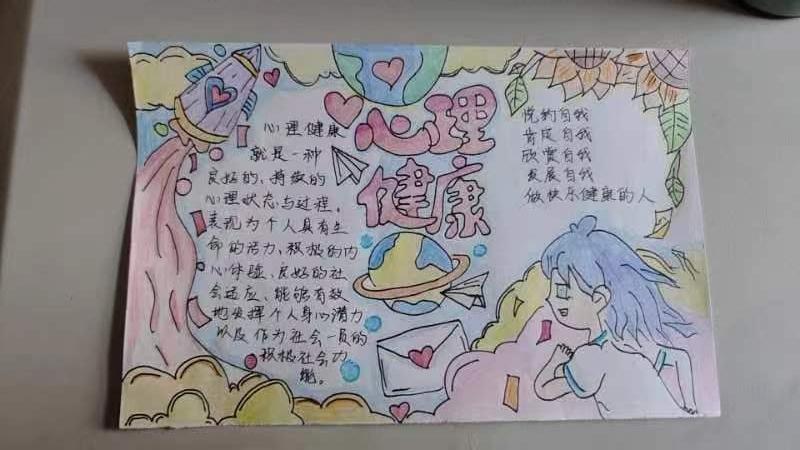 心理
健康
心理健康
就是一种
良好的、持续的
心理状态与过程，
表现为个人具有生
命的活力、积极的内
心体验、良好的社
会适应、能够有效
地发挥个人身心潜力
以及作为社会一员的
积极社会功
能。
悦纳自我
肯定自我
欣赏自我
发展自我
做快乐健康的人